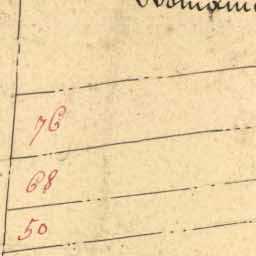 76
68
50